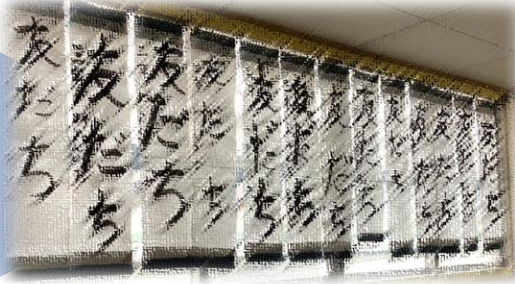 友だち
友だち
友だち
友だち
友だち
友だち
友だち
友だち
友だち
友だち
友だち
友だち
友だち